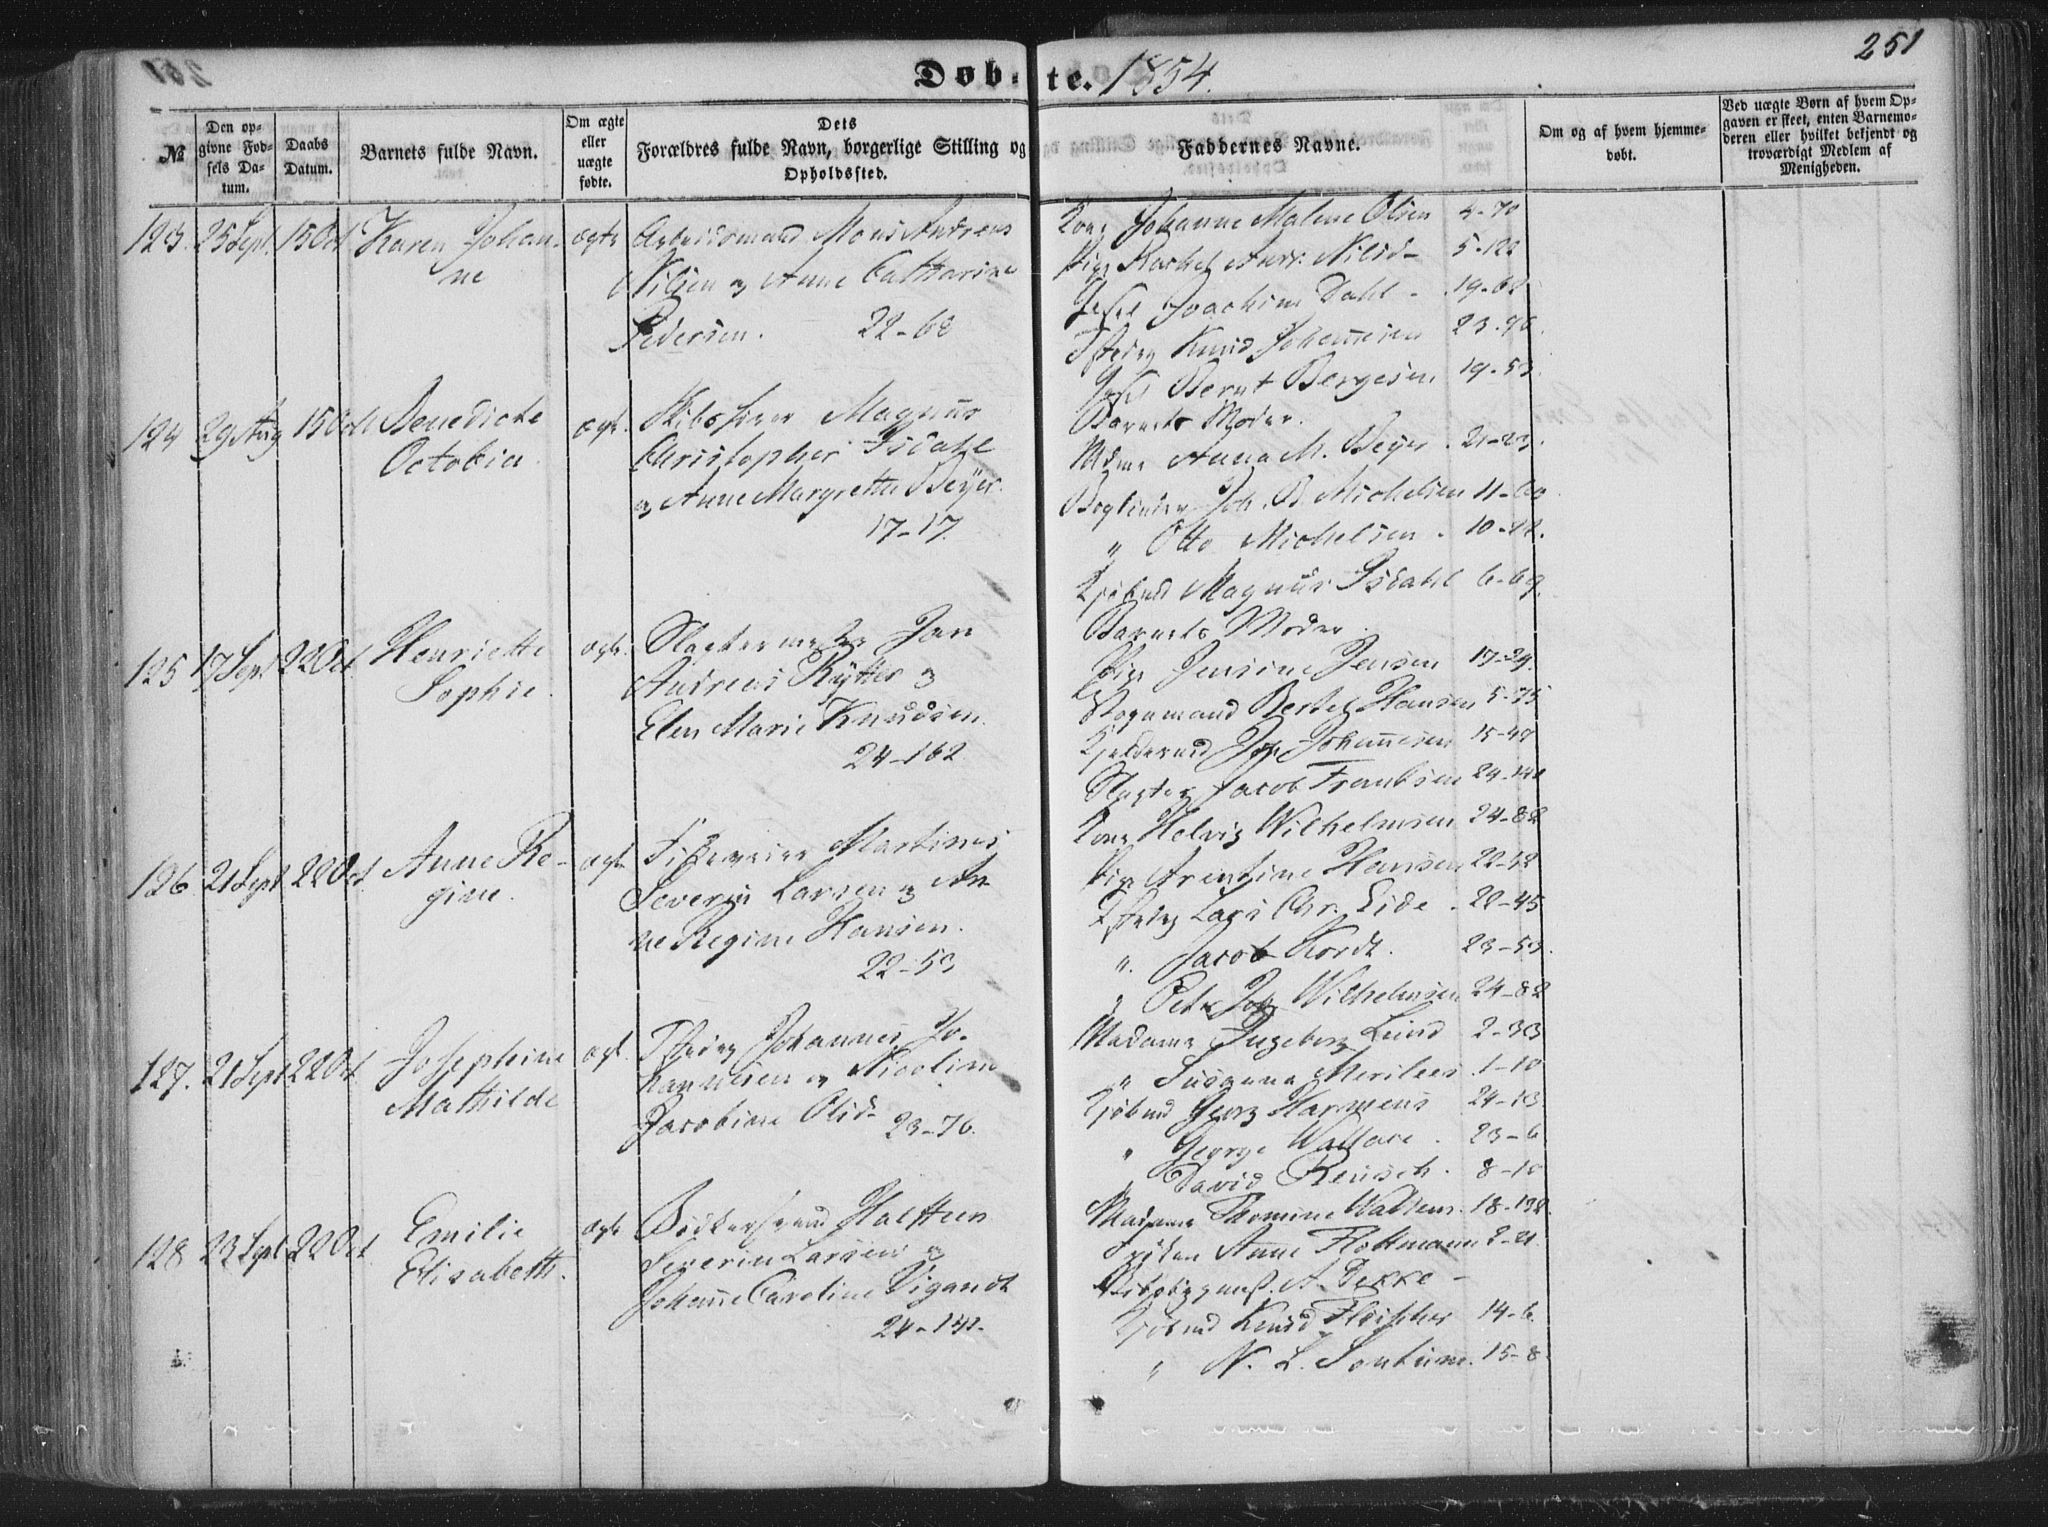 Døbte. 1854.
251
№
Den opgivne Fødsels Datum.
Daabs Datum.
Barnets fulde Navn.
Om ægte eller uægte fødte.
Dets Forældres fulde Navn, borgerlige Stilling og Opholdssted.
Faddernes Navne.
Om og af hvem hjemmedøbt.
Ved uægte Børn af hvem Opgaven er skeet, enten Barnemoderen eller hvilket bekjendt og troværdigt Medlem af Menigheden.
123. 25 Sept. 15 Oct. Karen Johanne ægte
Arbeidsmand Mons Andreas
Nilsen og Anne Catharine
Pedersen. 22-68
Kone Johanne Malene Olsen 4-70
Pige Rachel Nilsd- 5-122
Joachim Dahl - 19-62
Knud Johannesen 23-76.
Bernt Bergesen 19-53.
Barnets Moder.
124 29 Aug 15 Oct Benedicte Octobia ægt.
Skibsfører Magnus
Christopher Isdahl
og Anne Margrethe Beÿer.
17-17.
Mdme Anna M. Beyer. 21-23.
Bogbinder Joh. B. Michelsen 11-60
" Otto Michelsen. 10-12.
Kjøbmd Magnus Isdahl 6-69.
Barnets Moder.
125 17 Sept 22 Oct. Henriette Sophie. ægte.
Slagtermester Jan
Andreas Rÿtter og
Elen Marie Knudsen.
24-162
Pige Jensine Jensen 17-29.
Bertel Hansen 5-75
Johannesen 15-47
Slagter Jacob Frantsen 24-141
Kone Helvig Wilhelmsen 24-82
126. 21 Sept 22 Oct. Anne Regine. ægt
Martinus
Severin Larsen og Anne Regine Hansen.
22-53
Pige Arentine Hansen 22-52
Lars Chr. Eide. 22-45
". Jacob Kordt. 23-53.
" Peter Joh Wilhelmsen 24-82
127. 21 Sept 22 Oct Josephine Mathilde ægt.
Johannes Johannesen og Nicoline
Jacobine Olsd- 23-76.
Madame Ingeborg Leind 2-33
" Susanna Merilees. 1-10
Kjøbmd Georg Harmens 24-13
" George Wallace. 23-6
" David Reusch. 8-10
128 23 Sept 22 Oct. Emilie Elisabeth. ægte
Bødkersvend Halsten
Severin Larsen og
Johanne Caroline Vigandt
24-141.
Madame Thomine Waltsen. 18-132.
Frøken Anne Flottmann 2-21.
A. Dekke -
Kjøbmd Knud Fleischer 14-6
" N. L. Sontum. 15-8